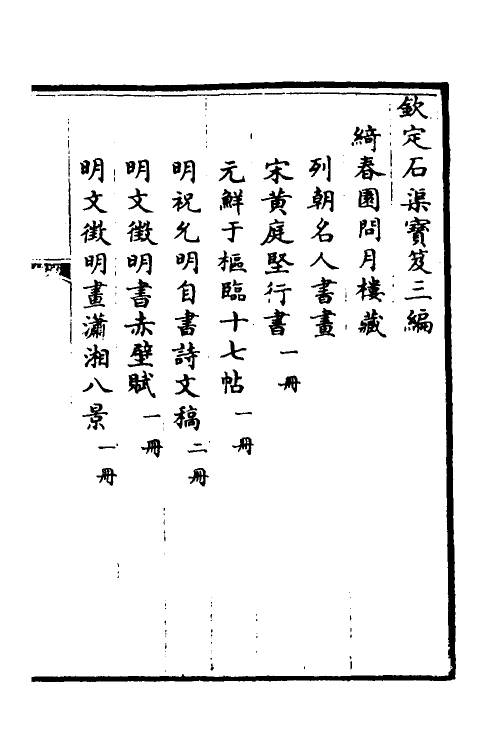 欽定石渠寳笈三編
綺春園問月樓藏
列朝名人書畫
宋黄庭堅行書一冊
元鮮于樞臨十七帖一冊
明祝允明自書詩文稿二冊
明文徵明書赤壁賦一冊
明文徵明畫瀟湘八景一冊